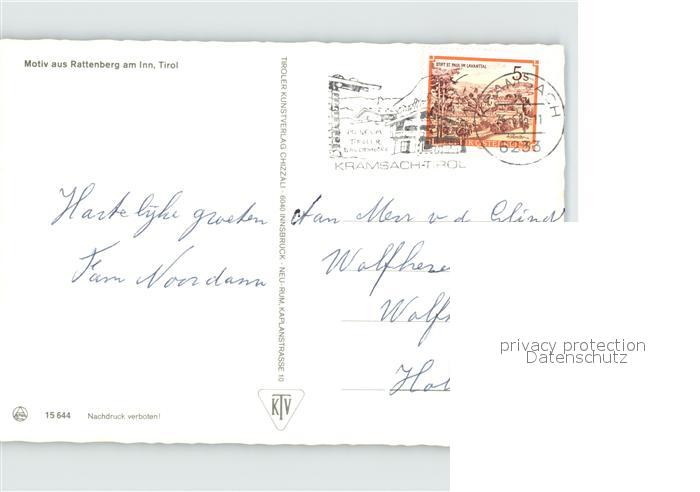 Motiv aus Rattenberg am Inn, Tirol
TIROLER KUNSTVERLAG CHIZZALI · 6040 INNSBRUCK - NEU-RUM, KAPLANSTRASSE 10
STIFT ST. PAUL IM LAVANTTAL
5s
REPUBLIK ÖSTERREICH
KRAMSACH
6233
MUSEUM
TIROLER
BAUERNHÖFE
KRAMSACH-TIROL
Hartelijke groeten
Fam Noordam
Aan Mevr v d
Wolfheze
Wolfh
Hol
privacy protection
Datenschutz
15 644 Nachdruck verboten!
KTV